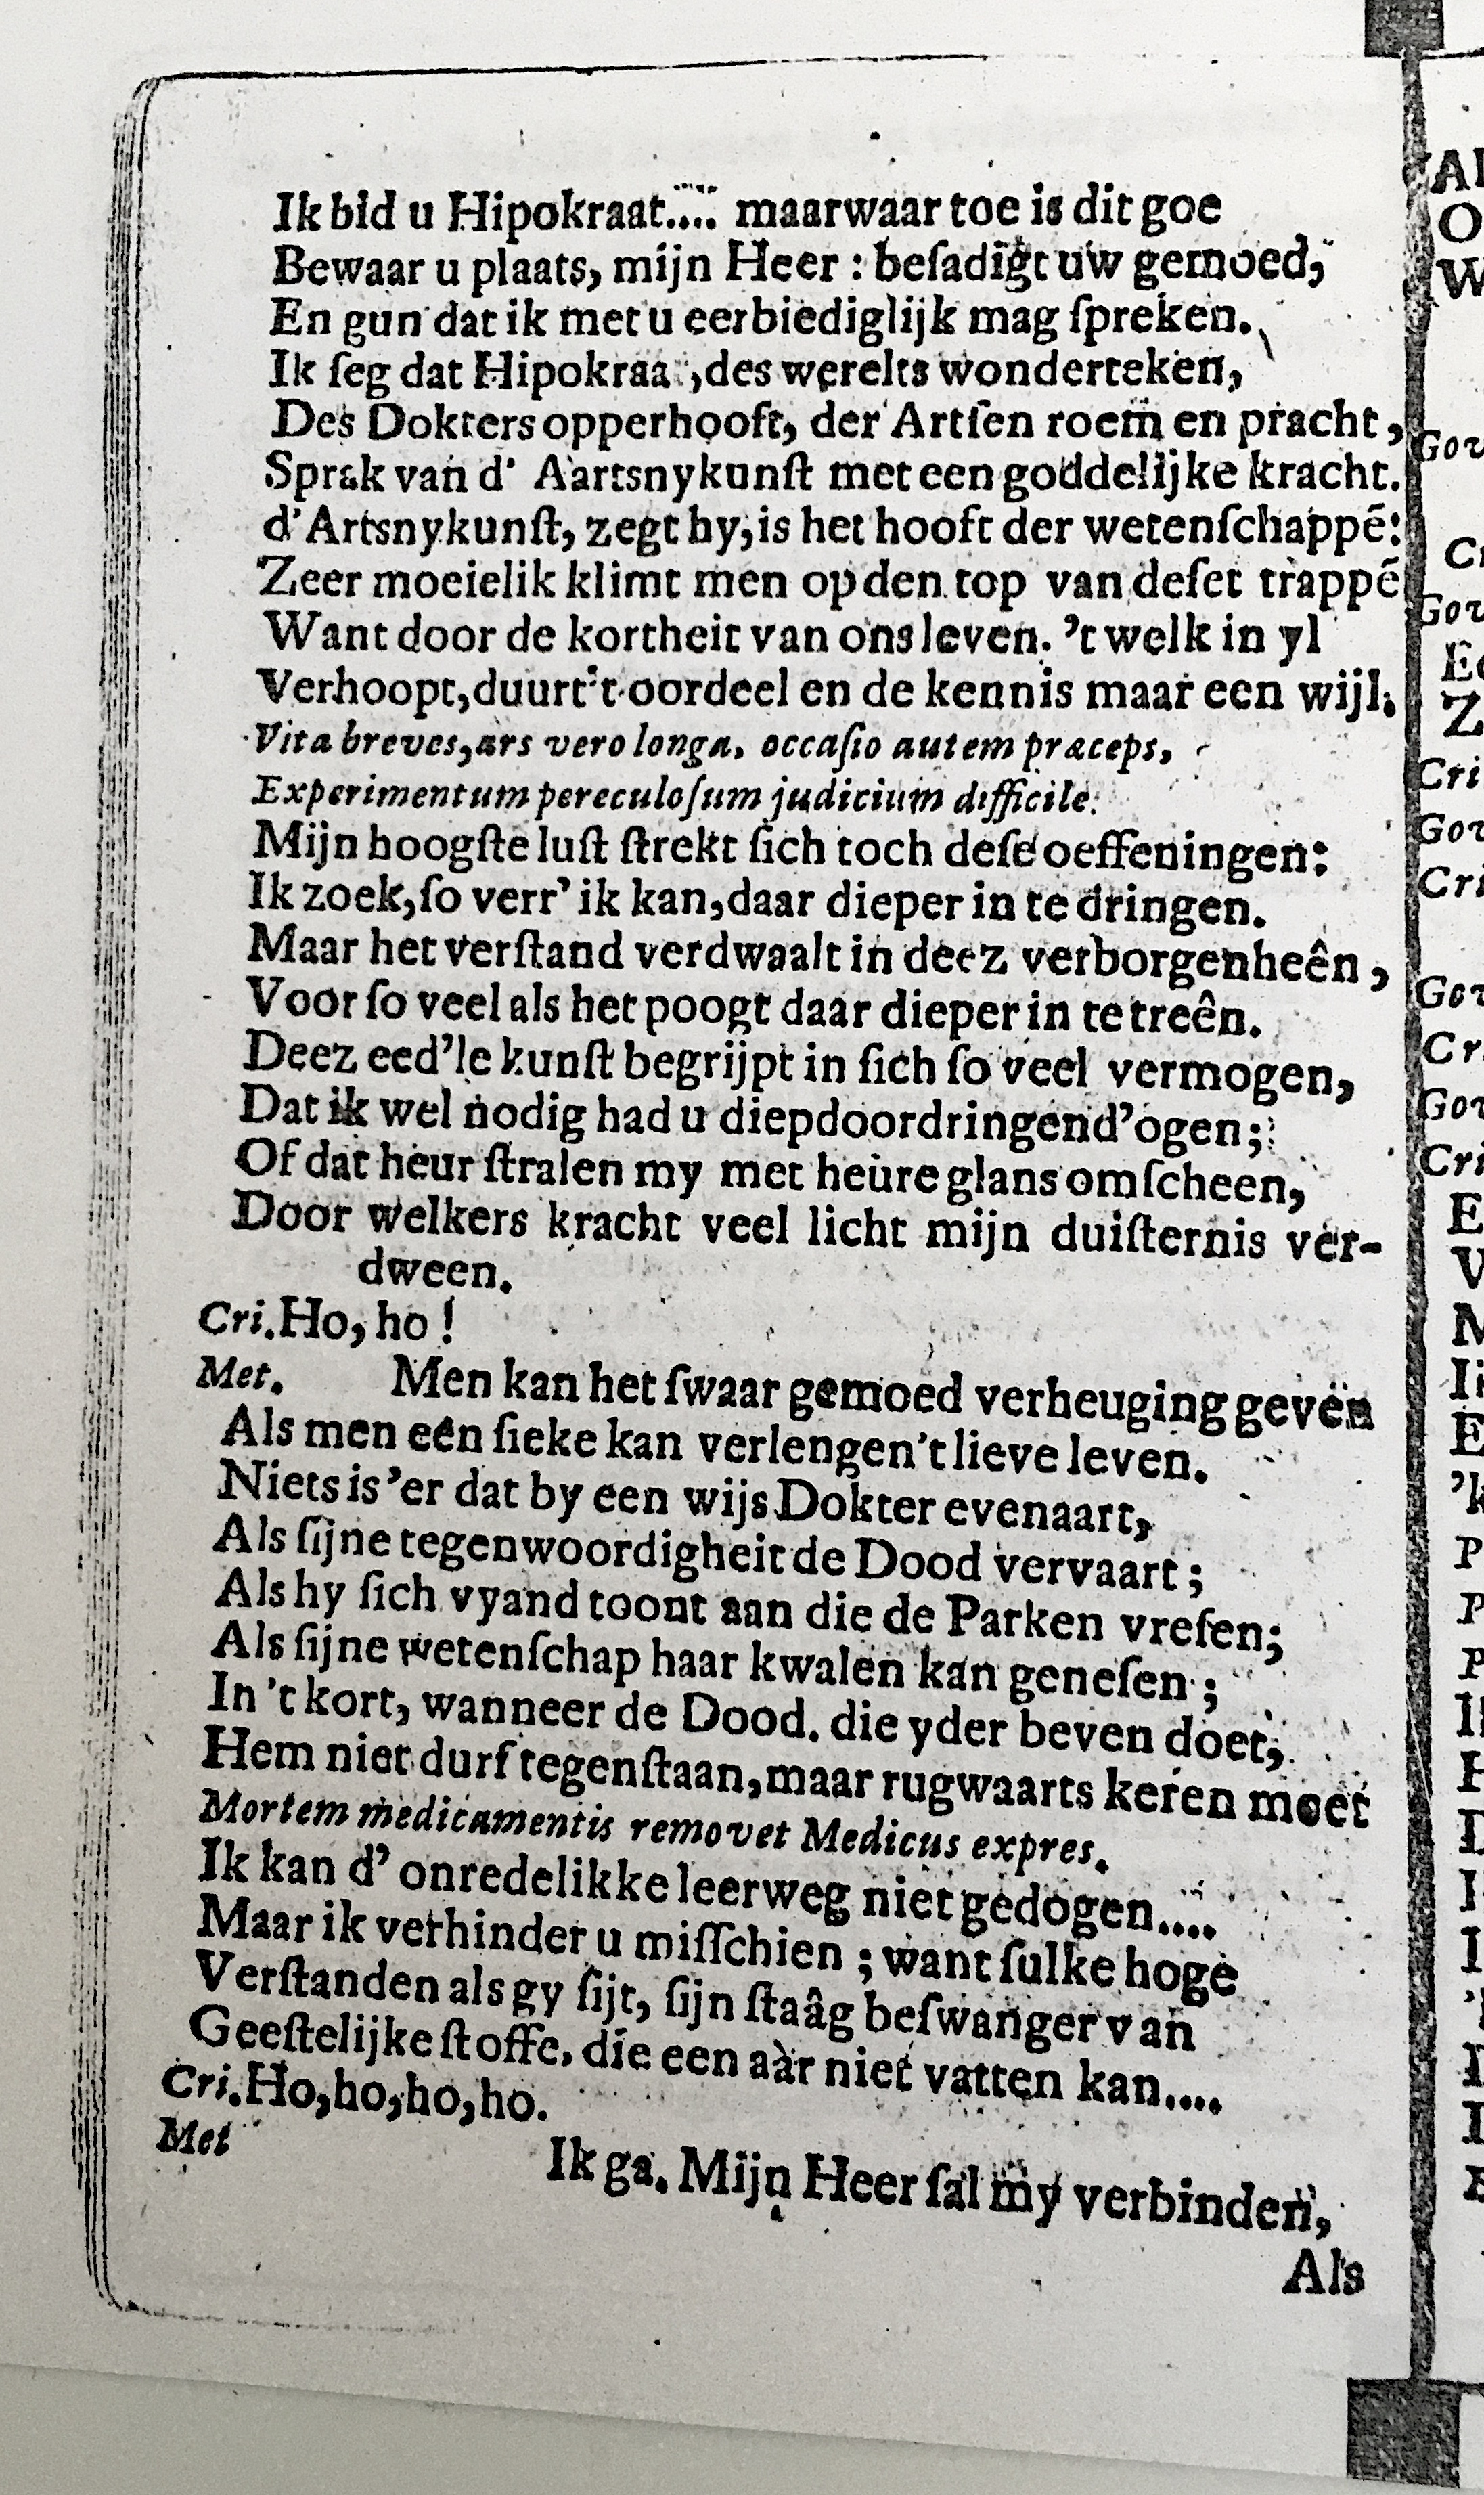 Ik bid u Hipokraat.... maar waar toe is dit goe
Bewaar u plaats, mijn Heer : beſadigt uw gemoed,
En gun dat ik met u eerbiediglijk mag ſpreken.
Ik ſeg dat Hipokraa ,des werelts wonderteken,
Des Dokters opperhooft, der Artſen roem en pracht,
Sprak van d' Aartsnykunſt met een goddelijke kracht.
d'Artsnykunſt, zegt hy, is het hooft der wetenſchappẽ:
Zeer moeielik klimt men op den top van deſet trappẽ
Want door de kortheit van ons leven. 't welk in yl
Verhoopt, duurt 't oordeel en de kennis maar een wijl.
Vita breves, ars vero longa, occaſio autem præceps,
Experimentum pereculoſum judicium difficile.
Mijn hoogſte luſt ſtrekt ſich toch deſe oeffeningen:
Ik zoek, ſo verr' ik kan, daar dieper in te dringen.
Maar het verſtand verdwaalt in deez verborgenheên,
Voor ſo veel als het poogt daar dieper in te treên.
Deez eed'le kunſt begrijpt in ſich ſo veel vermogen,
Dat ik wel nodig had u diepdoordringend'ogen;
Of dat heur ſtralen my met heure glans omſcheen,
Door welkers kracht veel licht mijn duiſternis ver-
dween.
Cri. Ho, ho !
Met. Men kan het ſwaar gemoed verheuging geven
Als men een ſieke kan verlengen 't lieve leven.
Niets is 'er dat by een wijs Dokter evenaart,
Als ſijne tegenwoordigheit de Dood vervaart ;
Als hy ſich vyand toont aan die de Parken vreſen;
Als ſijne wetenſchap haar kwalen kan geneſen ;
In 't kort, wanneer de Dood. die yder beven doet,
Hem niet durf tegenſtaan, maar rugwaarts keren moet
Mortem medicamentis removet Medicus expres.
Ik kan d' onredelikke leerweg niet gedogen....
Maar ik verhinder u miſſchien ; want ſulke hoge
Verſtanden als gy ſijt, ſijn ſtaâg beſwanger van
Geeſtelijke ſtoffe, die een aàr niet vatten kan....
Cri. Ho, ho, ho, ho.
Met Ik ga. Mijn Heer ſal my verbinden,
Als